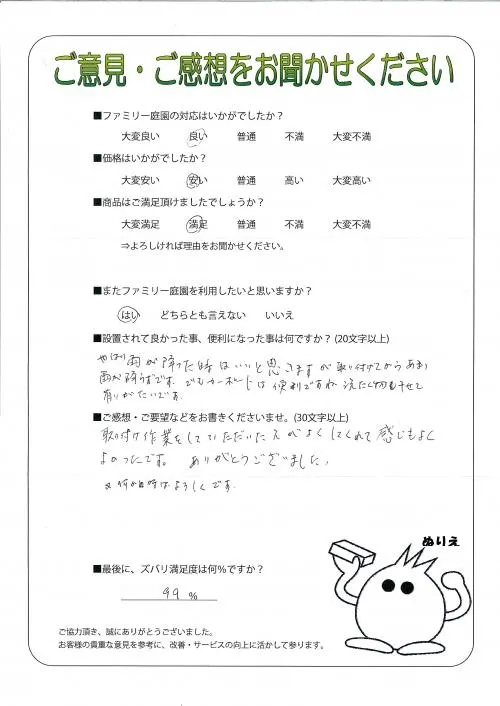 ご意見・ご感想をお聞かせください
■ファミリー庭園の対応はいかがでしたか?
大変良い 良い 普通 不満 大変不満
■価格はいかがでしたか?
大変安い 安い 普通 高い 大変高い
■商品はご満足頂けましたでしょうか?
大変満足 満足 普通 不満 大変不満
⇒よろしければ理由をお聞かせください。
■またファミリー庭園を利用したいと思いますか?
はい どちらとも言えない いいえ
■設置されて良かった事、便利になった事は何ですか?(20文字以上)
やはり雨が降った時はいいと思いますが取り付けてからあまり
雨が降らずです。でもカーポートは便利ですね
有りがたいです。
■ご感想・ご要望などをお書きくださいませ。(30文字以上)
取付け作業をしていただいた
よくしてくれて感じもよく
よかったです。ありがとうございました。
又何か の時はよろしくです。
ぬりえ
■最後に、ズバリ満足度は何%ですか?
99 %
ご協力頂き、誠にありがとうございました。
お客様の貴重な意見を参考に、改善・サービスの向上に活かして参ります。